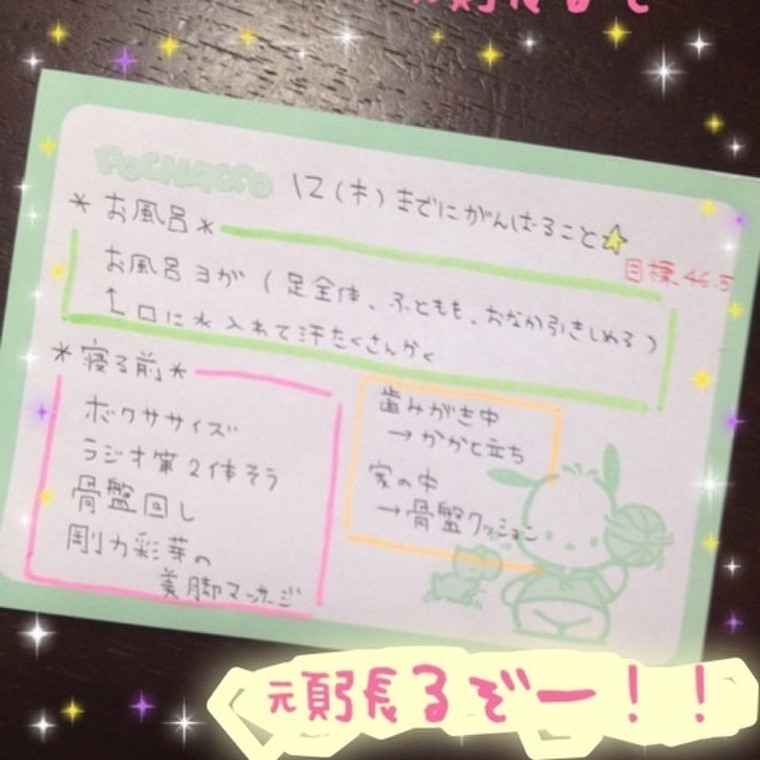 頑張るぞ
POCHACCO
12(木)までにがんばること☆
目標46.5
*お風呂*
お風呂ヨガ(足全体、ふともも、おなか引きしめる)
↑口に水入れて汗たくさんかく
*寝る前*
ボクササイズ
ラジオ第2体そう
骨盤回し
剛力彩芽の
美脚マッサージ
歯みがき中
→かかと立ち
家の中
→骨盤クッション
頑張るぞー!!